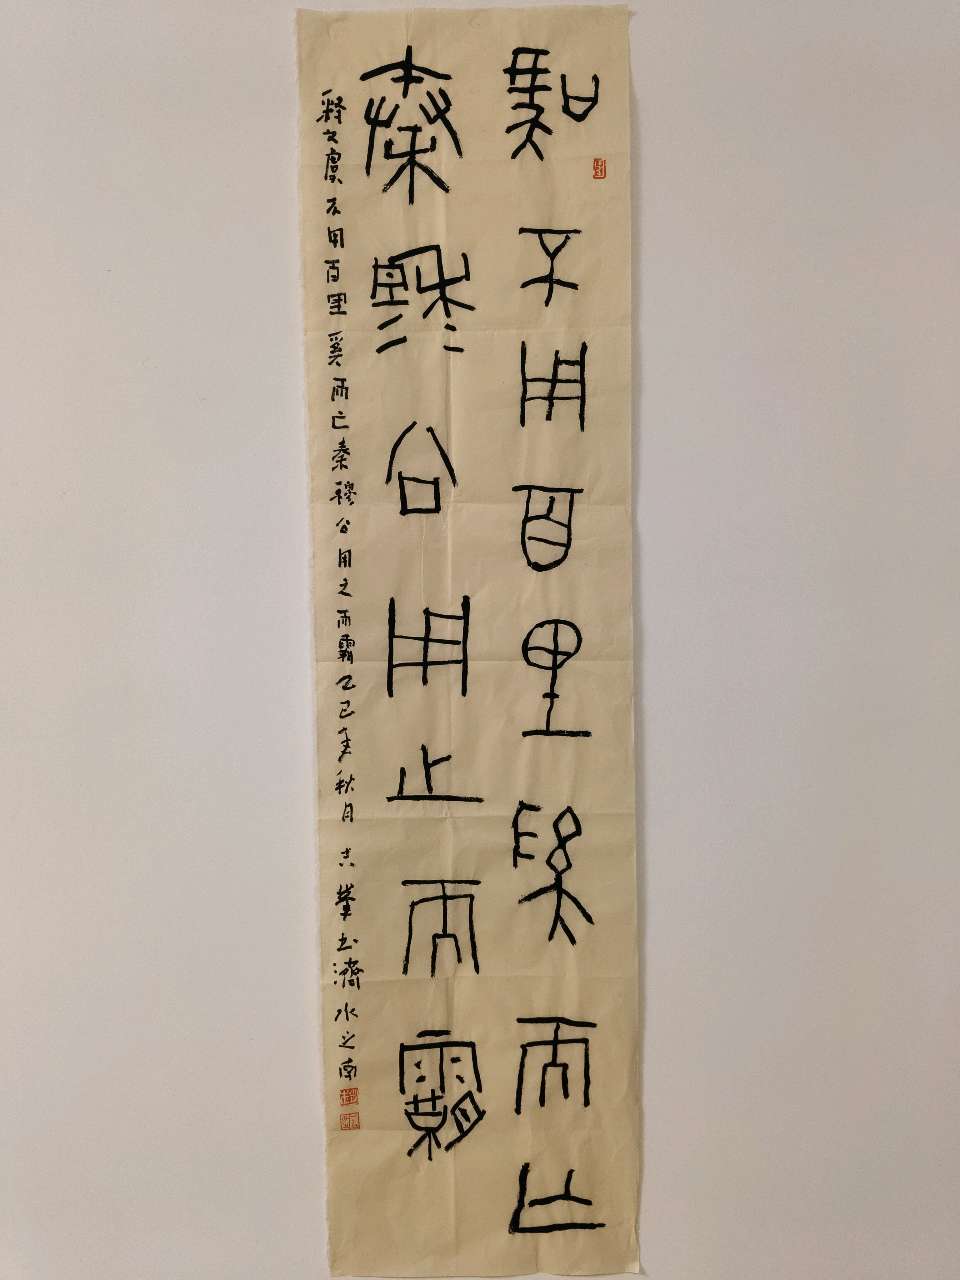 虞不用百里奚而亡
秦穆公用之而霸
释文虞不用百里奚而亡秦穆公用之而霸乙巳年秋月 志攀书济水之南